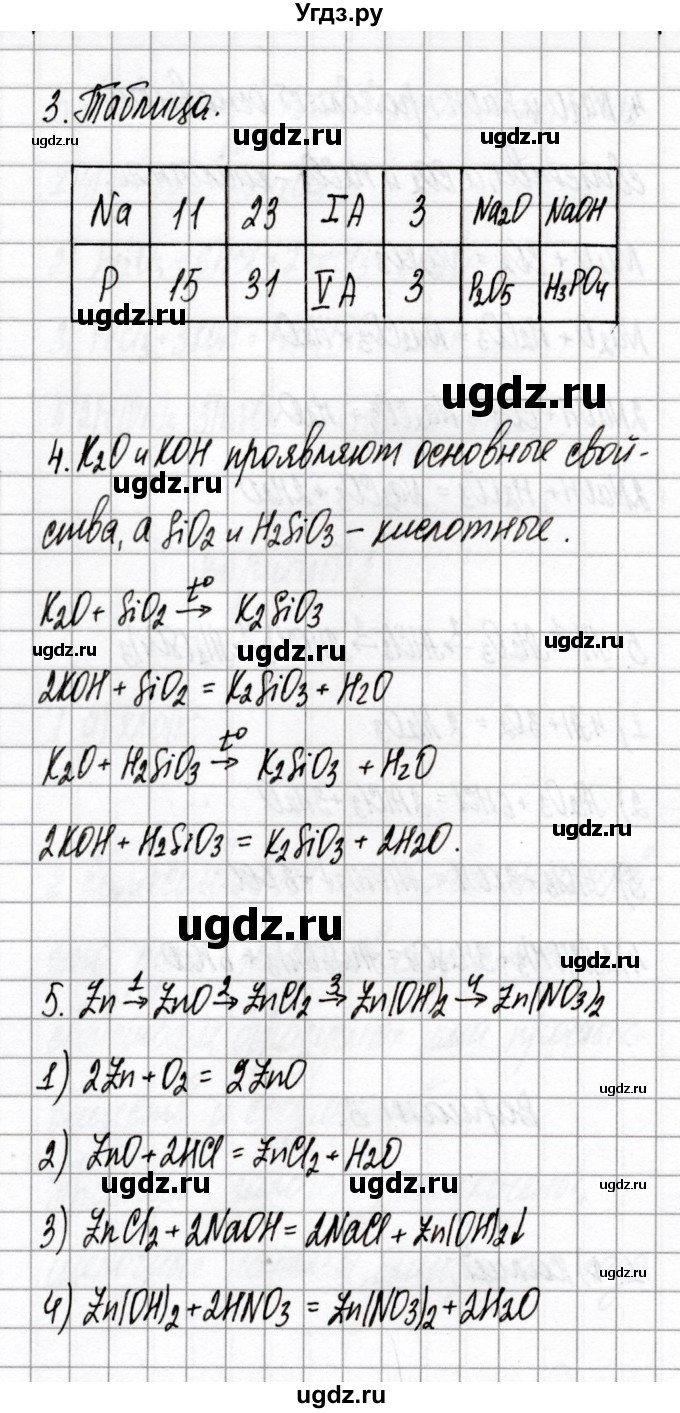 Угдз.ру
3. Таблица.
ugdz.ru ugdz.ru ugdz.ru
Na 11 23 IA 3 Na2O NaOH
P 15 31 VA 3 P2O5 H3PO4
ugdz.ru
ugdz.ru
4. K2O и KOH проявляют основные свой-
ugdz.ru
ства, а SiO2 и H2SiO3 – кислотные.
K2O + SiO2 t°→ K2SiO3
ugdz.ru ugdz.ru ugdz.ru
2KOH + SiO2 = K2SiO3 + H2O
K2O + H2SiO3 t°→ K2SiO3 + H2O
2KOH + H2SiO3 = K2SiO3 + 2H2O.
ugdz.ru
ugdz.ru
5. Zn 1→ ZnO 2→ ZnCl2 3→ Zn(OH)2 4→ Zn(NO3)2
1) 2Zn + O2 = 2ZnO
ugdz.ru
2) ZnO + 2HCl = ZnCl2 + H2O
ugdz.ru ugdz.ru ugdz.ru
3) ZnCl2 + 2NaOH = 2NaCl + Zn(OH)2↓
4) Zn(OH)2 + 2HNO3 = Zn(NO3)2 + 2H2O
ugdz.ru
ugdz.ru